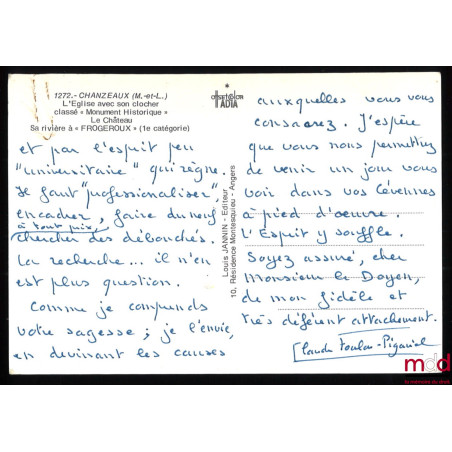 1272.- CHANZEAUX (M.-et-L.)
L'Eglise avec son clocher
classé « Monument Historique »
Le Château
Sa rivière à « FROGEROUX » (1e catégorie)
et par l'esprit peu
"universitaire" qui règne.
Il faut "professionaliser",
encadrer, faire du neuf
à tout prix,
chercher des débouchés.
La recherche... il n'en
est plus question.
Comme je comprends
votre sagesse ; je l'envie,
en devinant les causes
ADIA
Louis JANNIN - Editeur
10, Résidence Montesquieu - Angers
auxquelles vous vous
consacrez. J'espère
que vous nous permettrez
de venir un jour vous
voir dans vos Cévennes
à pied d'oeuvre.
L'Esprit y souffle.
Soyez assuré, cher
Monsieur le Doyen,
de mon fidèle et
très déférent attachement.
Claude Foulon-Piganiol
mdd
la mémoire du droit